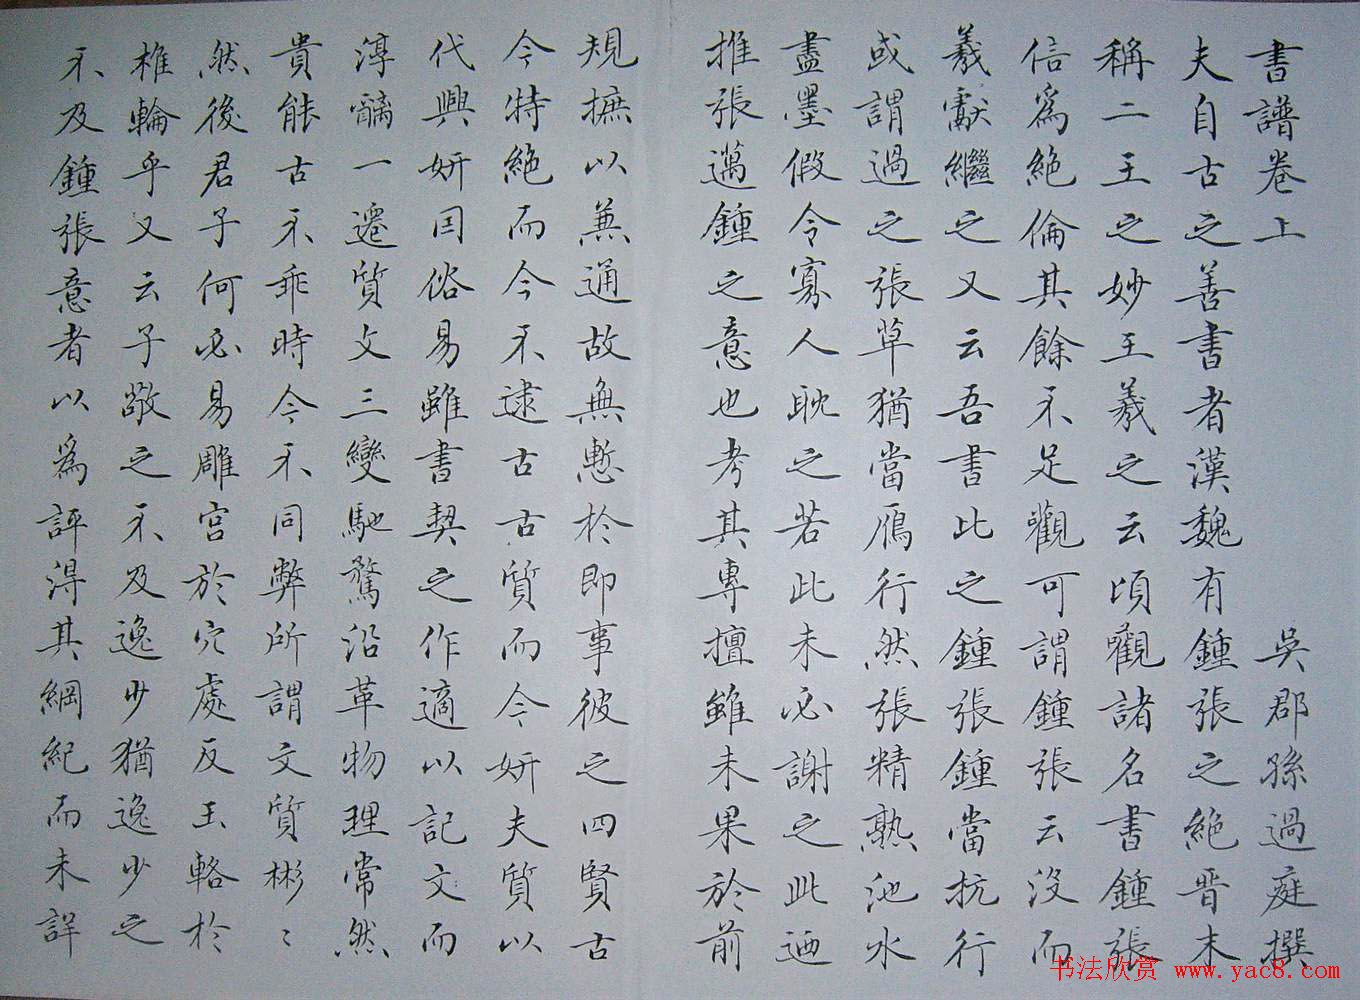 書譜卷上 吳郡孫過庭撰
夫自古之善書者漢魏有鍾張之絕晉末
稱二王之妙王羲之云頃觀諸名書鍾張
信為絕倫其餘不足觀可謂鍾張云沒而
羲獻繼之又云吾書比之鍾張鍾當抗行
或謂過之張草猶當鴈行然張精熟池水
盡墨假令寡人耽之若此未必謝之此迺
推張邁鍾之意也考其專擅雖未果於前
規摭以兼通故無慙於即事彼之四賢古
今特絕而今不逮古古質而今妍夫質以
代興妍因俗易雖書契之作適以記文而
淳醨一遷質文三變馳騖沿革物理常然
貴能古不乖時今不同弊所謂文質彬〻
然後君子何必易雕宮於穴處反玉輅於
椎輪乎又云子敬之不及逸少猶逸少之
不及鍾張意者以為評得其綱紀而未詳
书法欣赏 www.yac8.com